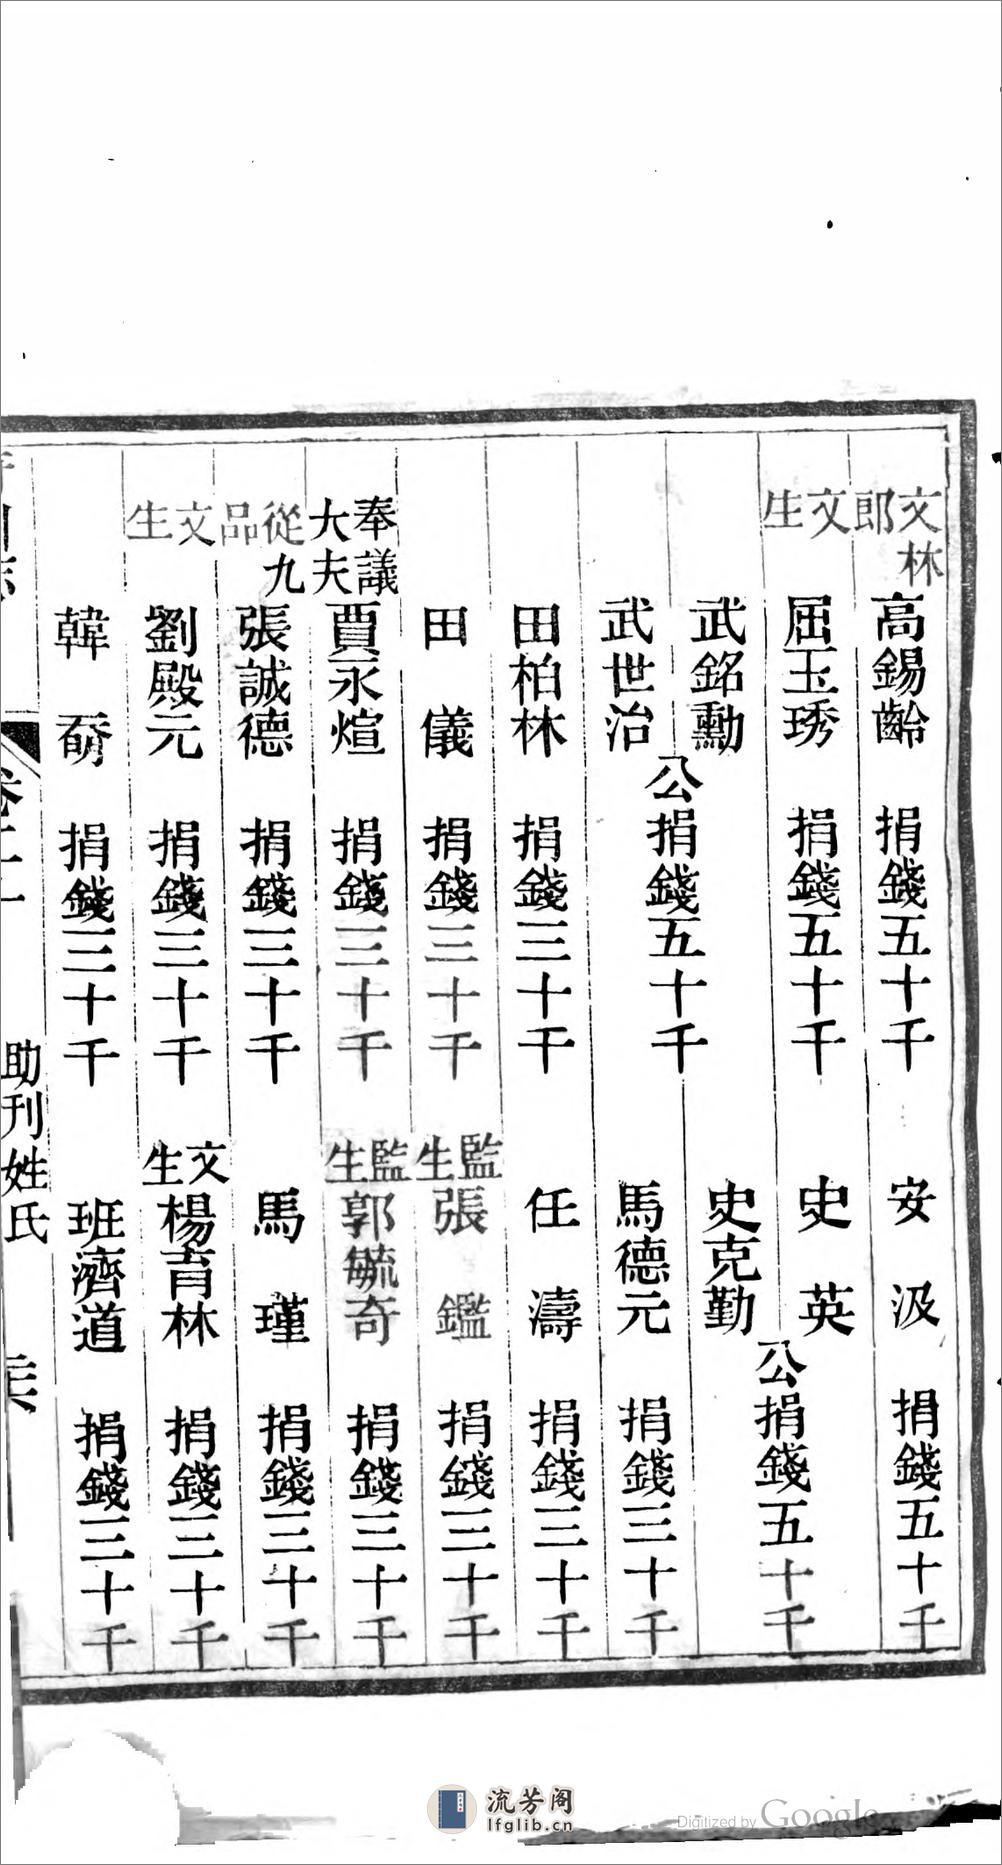 文林郎高錫齡 捐錢五十千 安汲 捐錢五十千
文生屈玉琇 捐錢五十千 史英
武銘勳 史克勤 公捐錢五十千
武世治 公捐錢五十千 馬德元 捐錢三十千
田柏林 捐錢三十千 任濤 捐錢三十千
田儀 捐錢三十千 監生張鑑 捐錢三十千
奉議大夫賈永煊 捐錢三十千 監生郭毓奇 捐錢三十千
從九品張誠德 捐錢三十千 馬瑾 捐錢三十千
文生劉殿元 捐錢三十千 文生楊育林 捐錢三十千
韓奫 捐錢三十千 班濟道 捐錢三十千
助刊姓氏
流芳阁
lfglib.cn
Digitized by Google